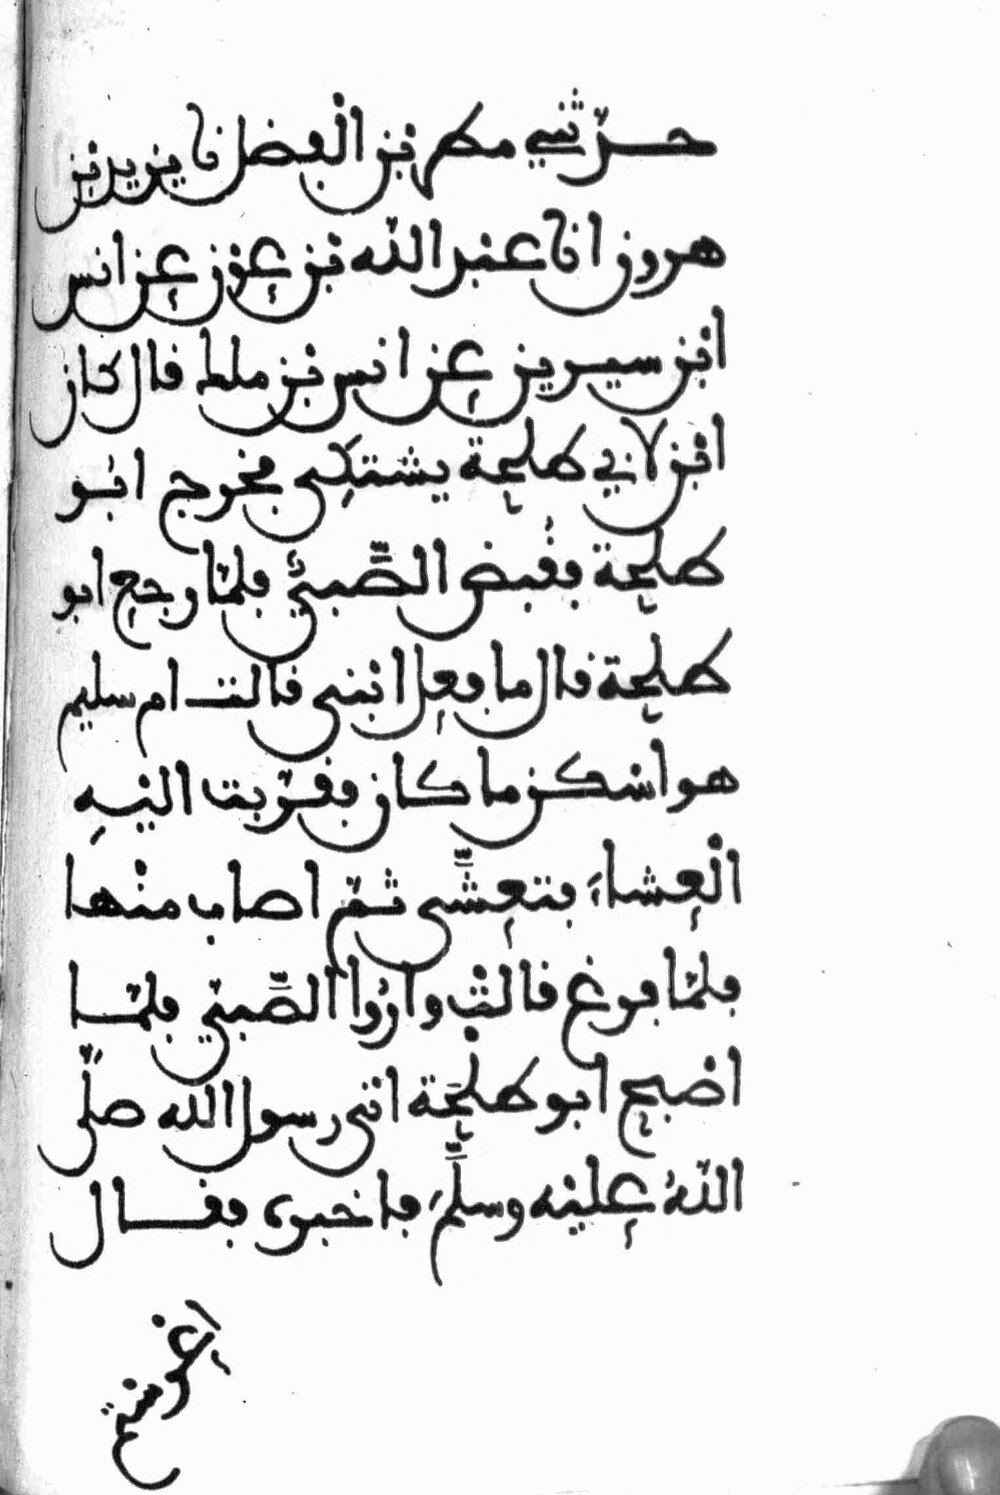 حدثني مطر بن الفضل نا يزيد بن
هرون انا عبد الله بن عون عن انس
ابن سيرين عن انس بن ملك قال كان
ابن لابي طلحة يشتكي فخرج ابو
طلحة فقبض الصبي فلما رجع ابو
طلحة قال ما فعل ابني قالت ام سليم
هو اسكن ما كان فقربت اليه
العشاء فتعشى ثم اصاب منها
فلما فرغ قالت واروا الصبي فلما
اصبح ابو طلحة اتى رسول الله صلى
الله عليه وسلم فاخبره فقال